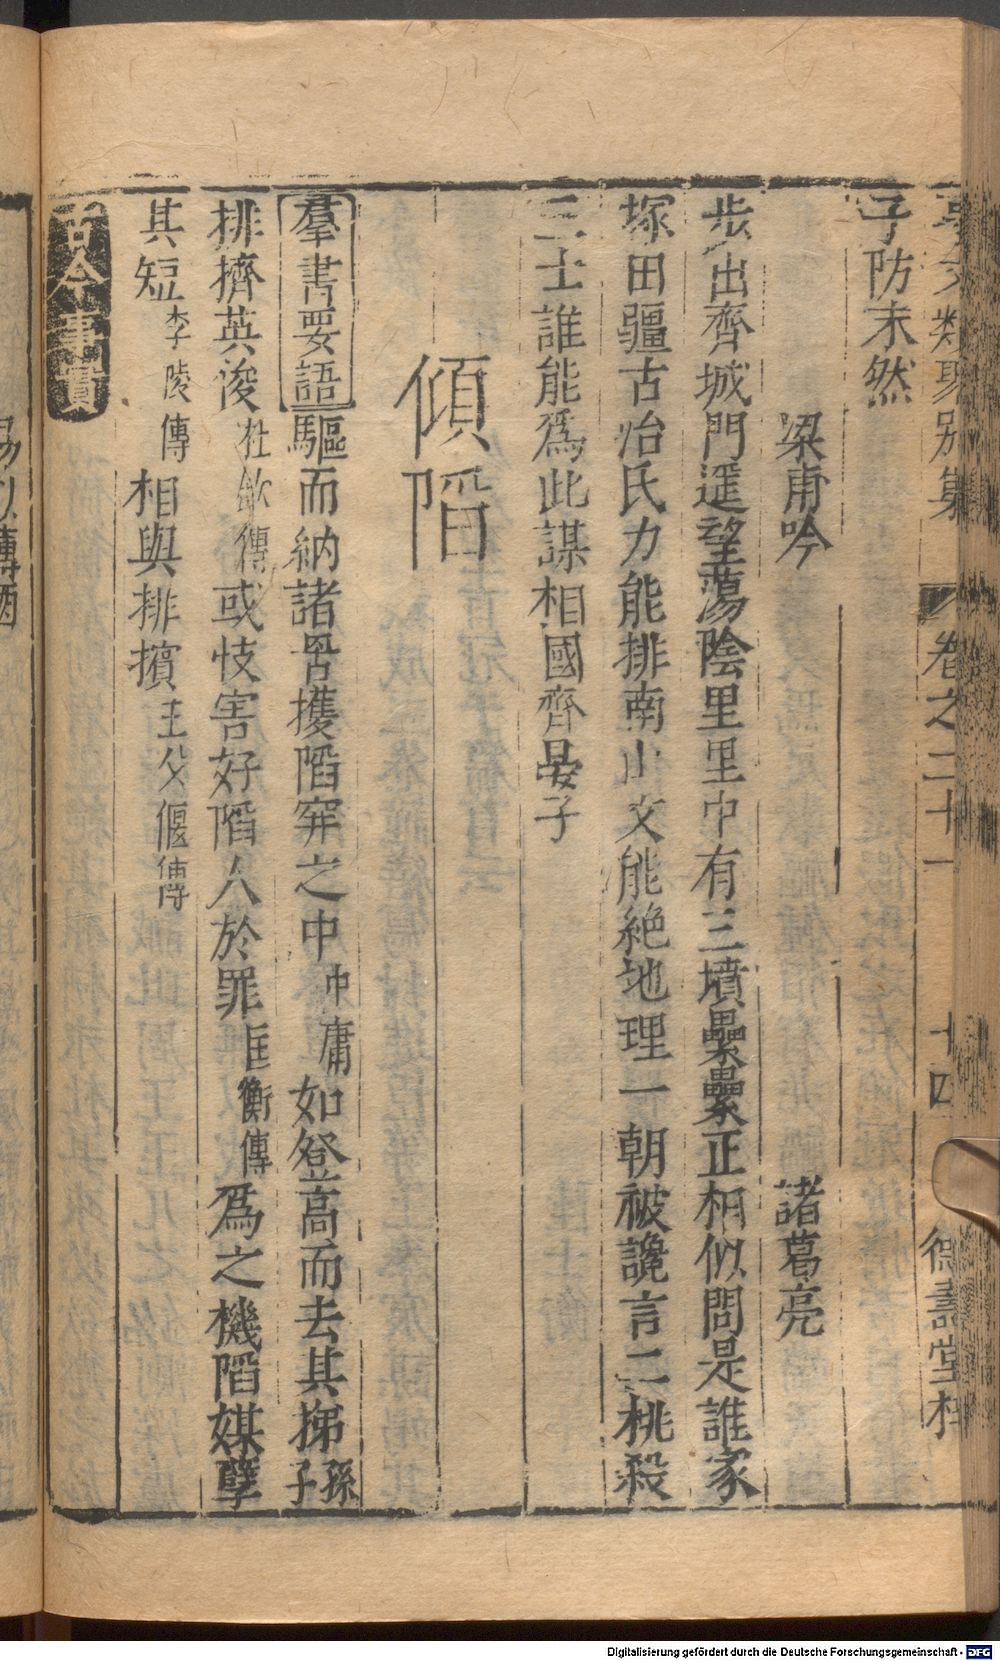 事文類聚別集 卷之二十一 十四 德壽堂梓
子防未然
梁甫吟 諸葛亮
步出齊城門遥望蕩陰里里中有三墳纍纍正相似問是誰家
塚田疆古冶氏力能排南山文能絶地理一朝被讒言二桃殺
三士誰能爲此謀相國齊晏子
傾陷
羣書要語驅而納諸罟擭陷穽之中中庸如登高而去其梯孫子
排擠英浚杜欽傳或忮害好陷人於罪匡衡傳爲之機陷媒孽
其短李陵傳相與排擯主父偃傳
古今事實
Digitalisierung gefördert durch die Deutsche Forschungsgemeinschaft - DFG